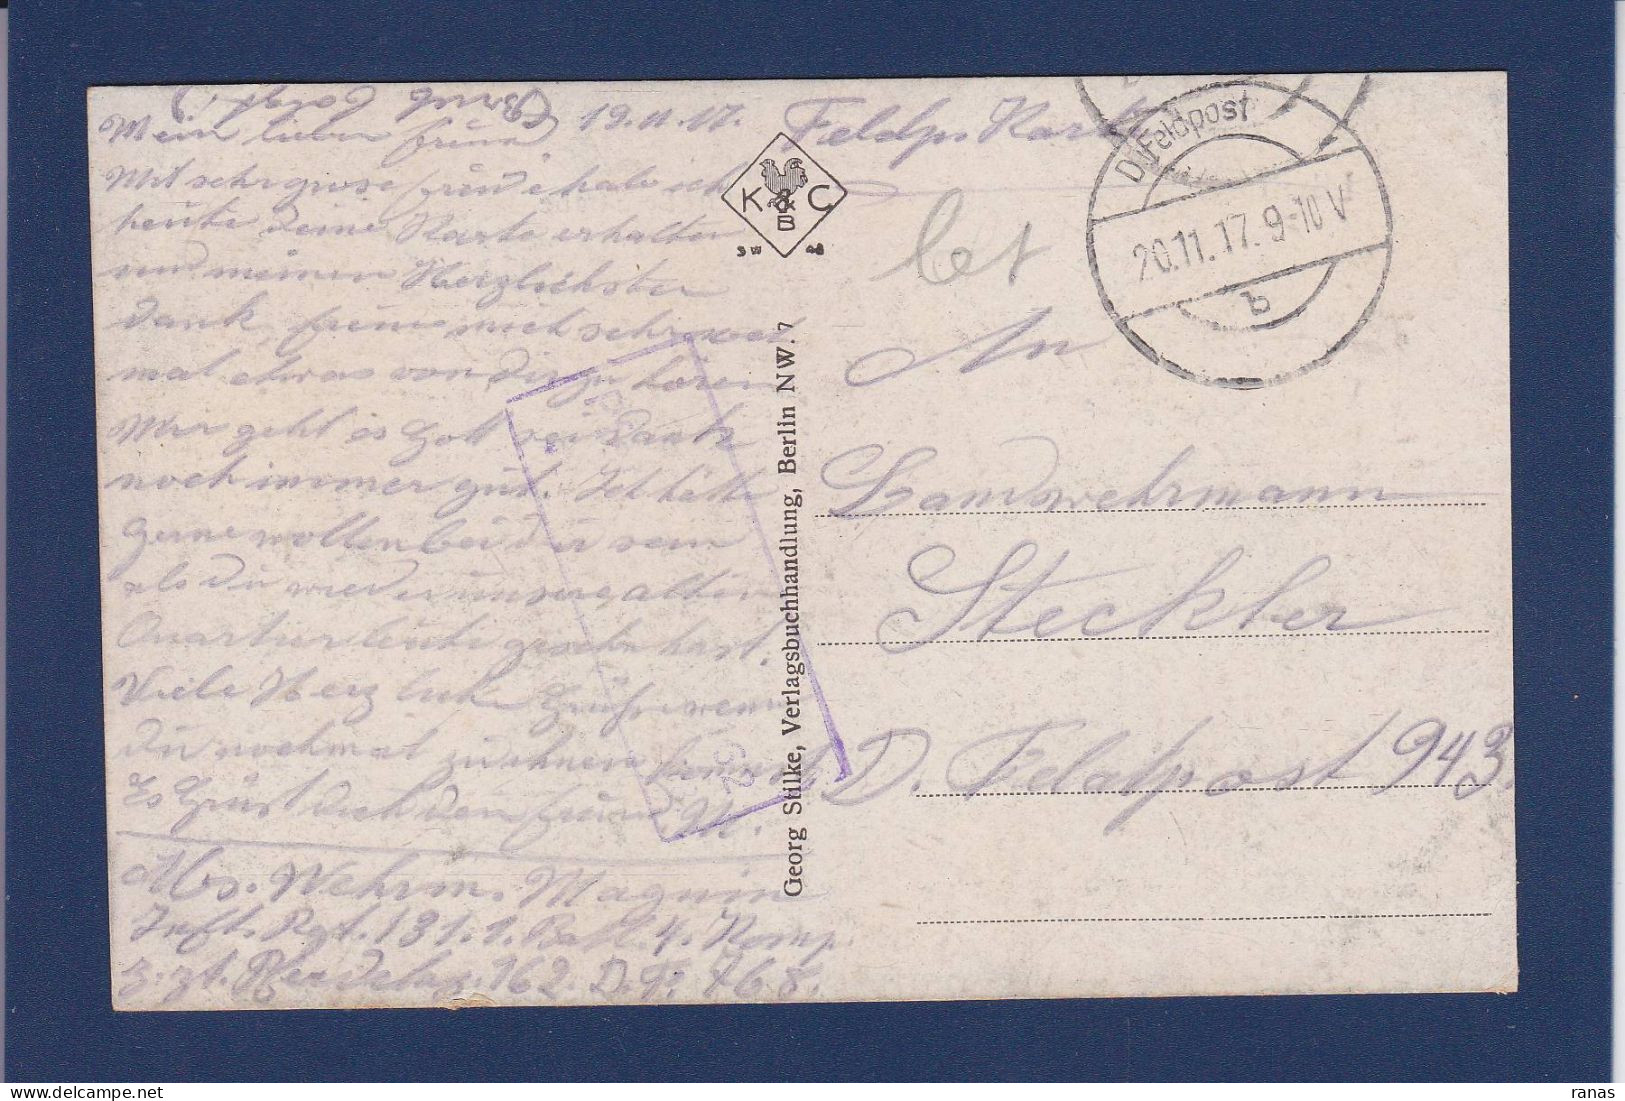 19.11.17. Feldp. Karte
Mein lieber freund,
Mit sehr grose freude habe ich
heute deine Karte erhalten
und meinen Herzlichsten
Dank, freue mich sehr
mal etwas von dir zu hören
Mir geht es Gott sei Dank
noch immer gut. Ich hätte
gerne wollen bei dir sein
als du wieder unsere alten
Quartierleute gesehn hast.
Viele Herzliche Grüße wenn
du nochmal zu ihnen kommst
Es Grüst dich dein freund M.
Abs. Wehrm. Magnin
Inft. Rgt. 131. 1. Batl. 4. Komp.
z. zt. Pferdelaz. 162. D. F. 768.
K & C
B
Georg Stilke, Verlagsbuchhandlung, Berlin NW. 7
D. Feldpost
20.11.17. 9-10 V
b
An
Landwehrmann
Steckler
D. Feldpost 943.
ranas